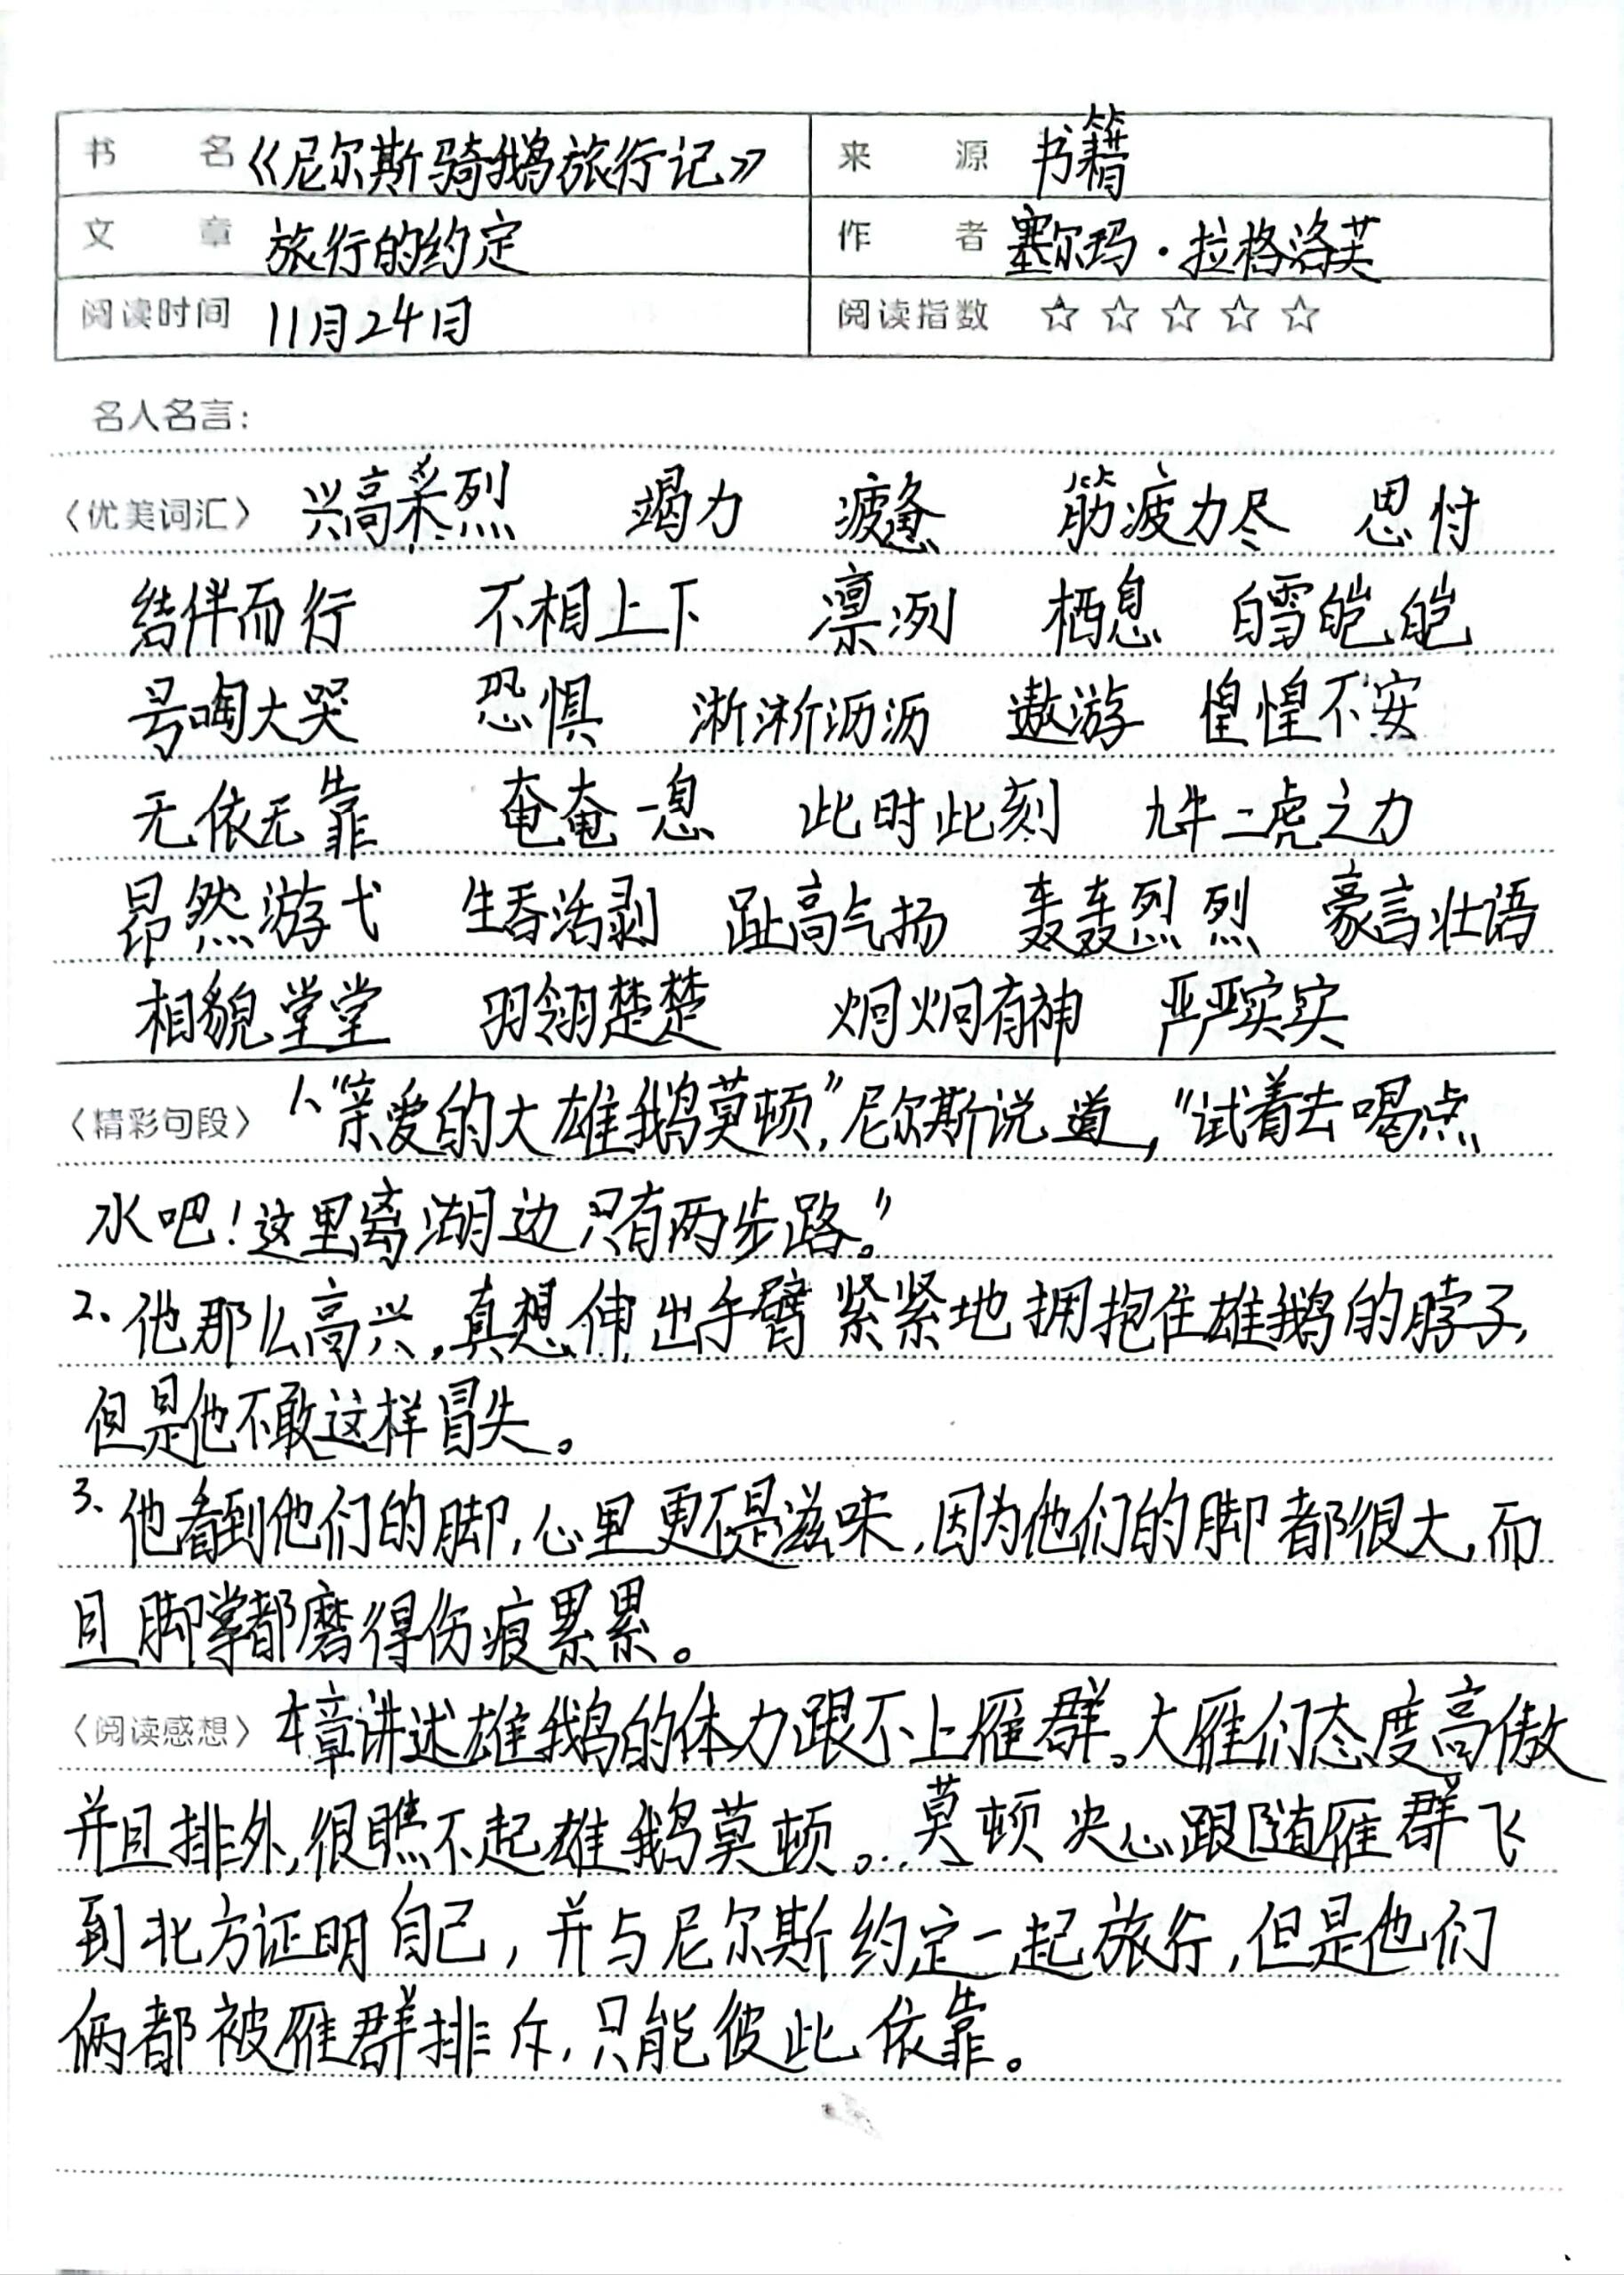 书名 《尼尔斯骑鹅旅行记》 来源 书籍
文章 旅行的约定 作者 塞尔玛·拉格洛芙
阅读时间 11月24日 阅读指数 ☆☆☆☆☆
名人名言:
〈优美词汇〉 兴高采烈 竭力 疲惫 筋疲力尽 思忖
结伴而行 不相上下 凛冽 栖息 白雪皑皑
号啕大哭 恐惧 淅淅沥沥 遨游 惶惶不安
无依无靠 奄奄一息 此时此刻 九牛二虎之力
昂然游弋 生吞活剥 趾高气扬 轰轰烈烈 豪言壮语
相貌堂堂 羽翎楚楚 炯炯有神 严严实实
〈精彩句段〉 1、“亲爱的大雄鹅莫顿,”尼尔斯说道,“试着去喝点
水吧!这里离湖边只有两步路。”
2、他那么高兴,真想伸出手臂紧紧地拥抱住雄鹅的脖子,
但是他不敢这样冒失。
3、他看到他们的脚,心里更不是滋味,因为他们的脚都很大,而
且脚掌都磨得伤痕累累。
〈阅读感想〉 本章讲述雄鹅的体力跟不上雁群。大雁们态度高傲
并且排外,很瞧不起雄鹅莫顿。..莫顿决心跟随雁群飞
到北方证明自己,并与尼尔斯约定一起旅行,但是他们
俩都被雁群排斥,只能彼此依靠。